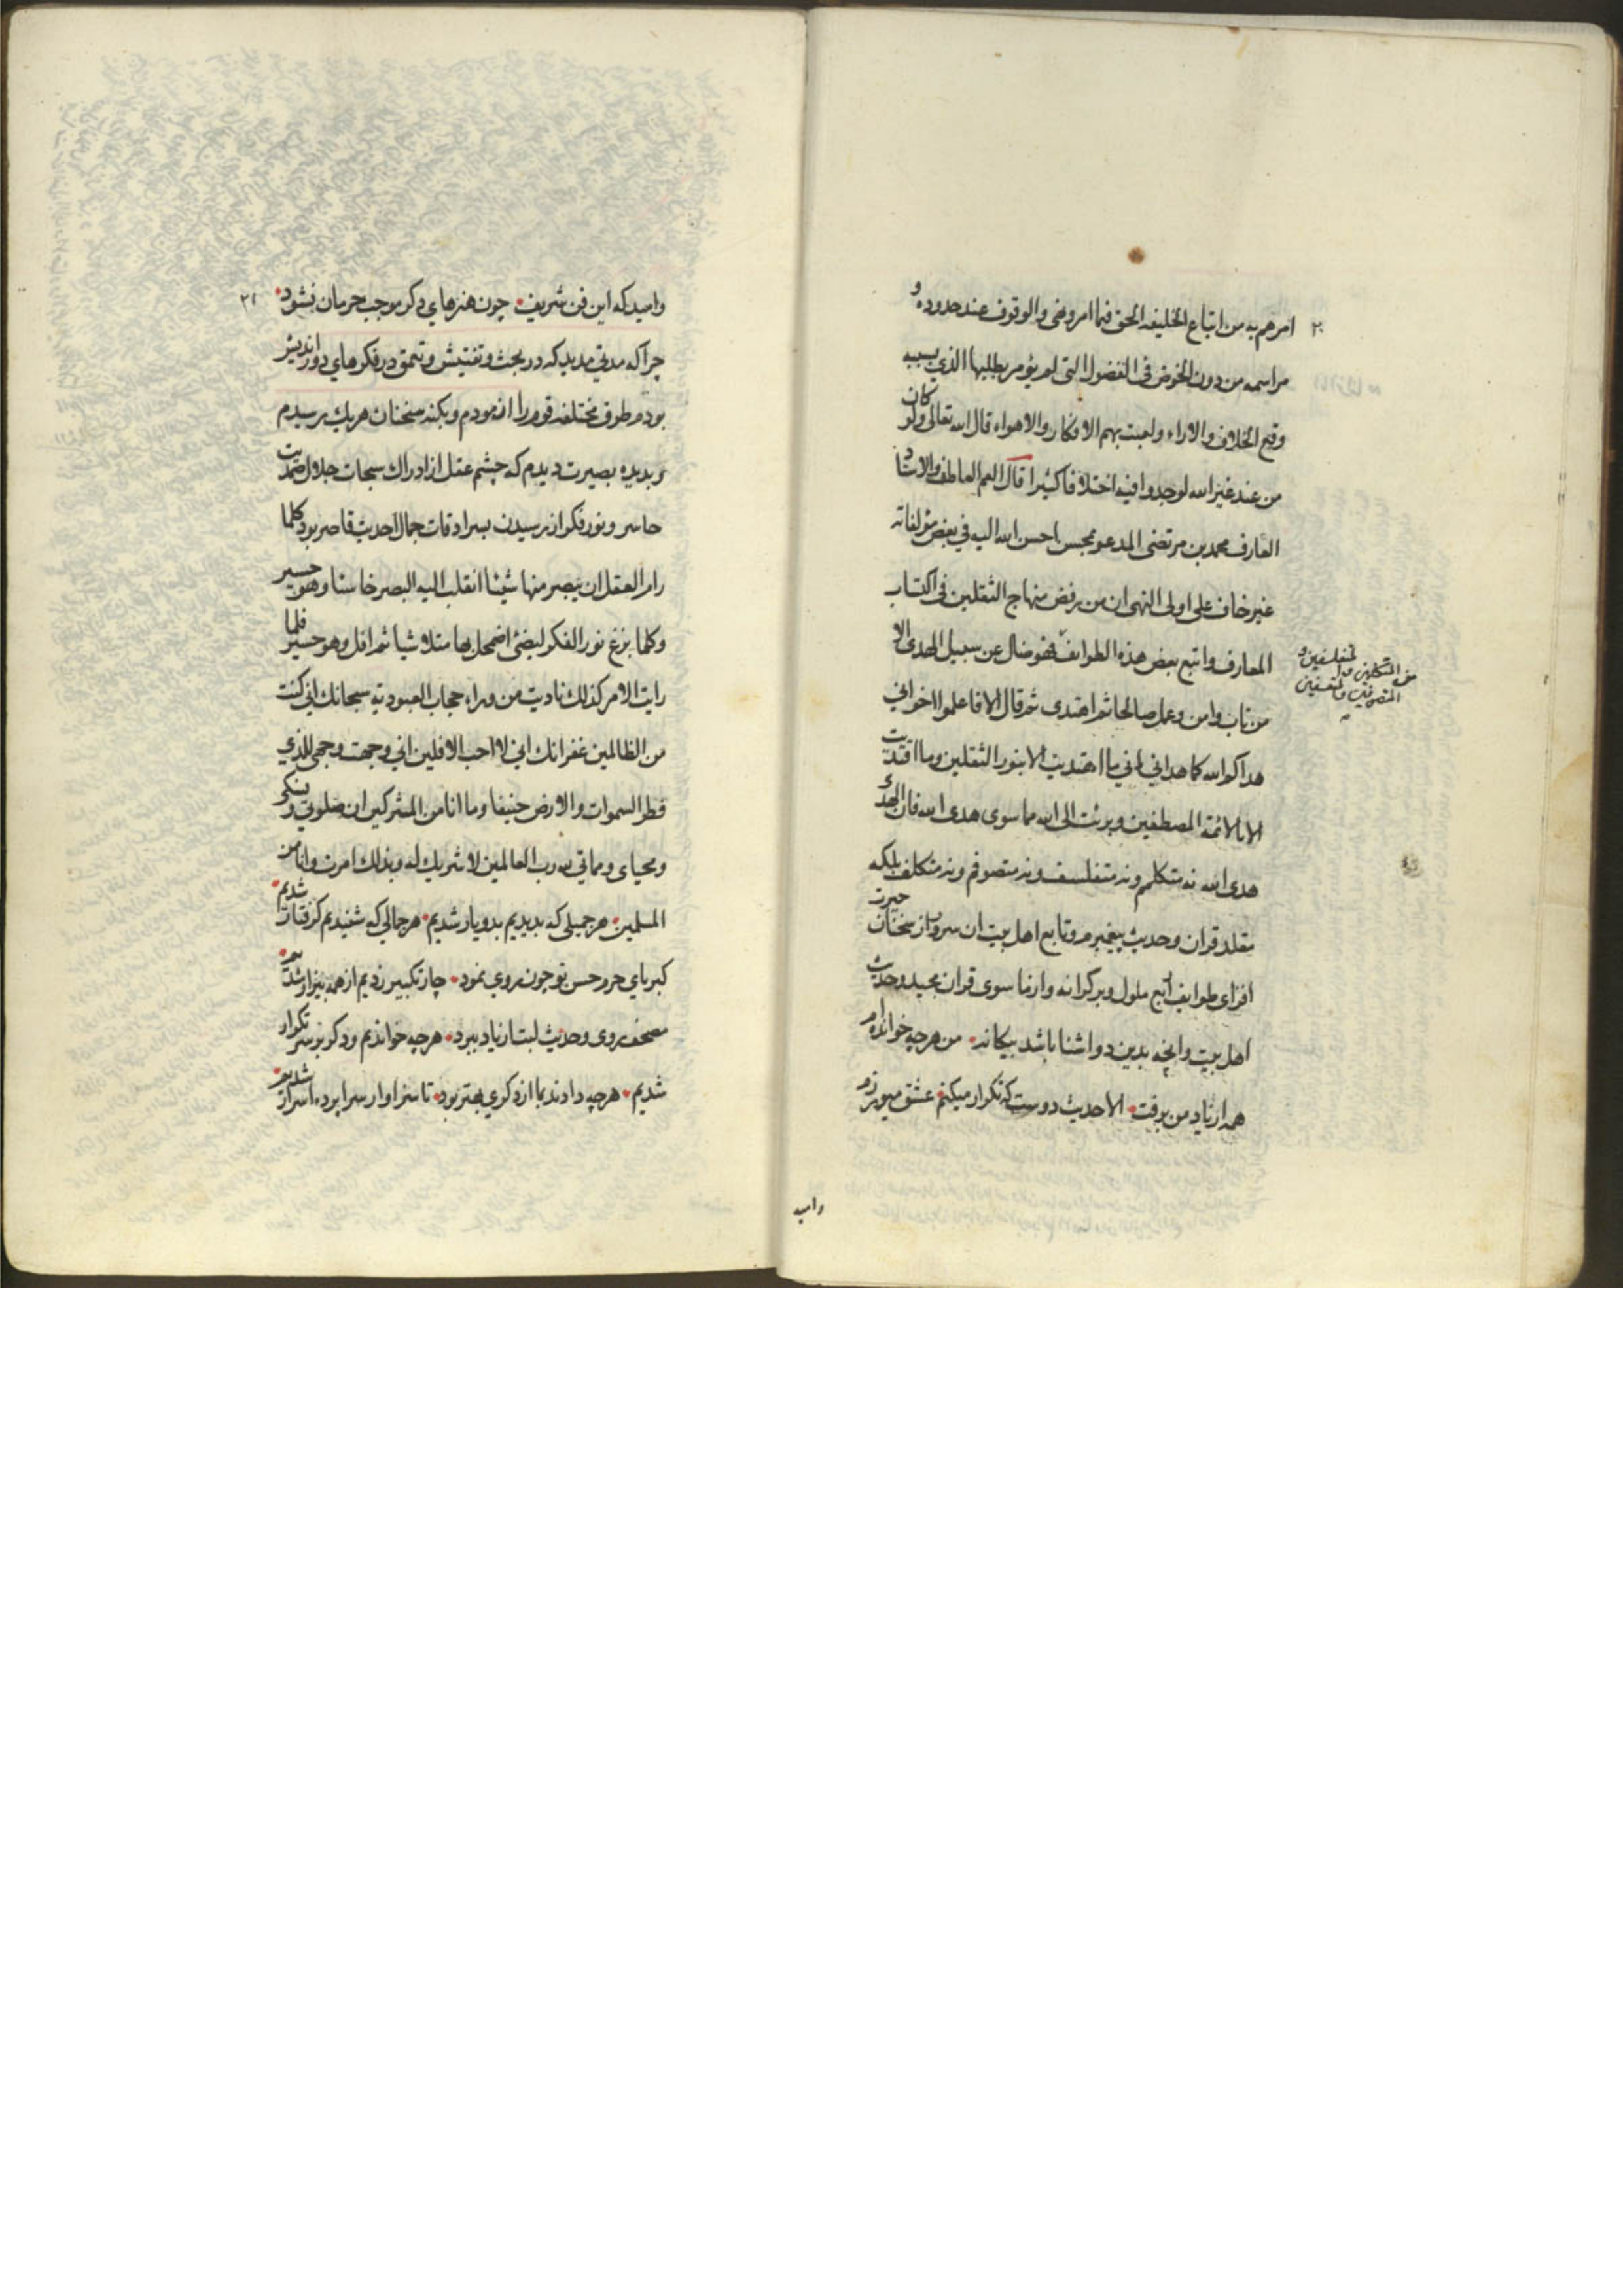 ٢٠
امرهم به من اتباع الخليفه الحق فيما امر ونهى والوقوف عند حدوده و
مراسمه من دون الخوض في الفضول التي لم يؤمر بطلبها الذي بسببه
وقع الخلاف والاراء ولعبت بهم الافكار والاهواء قال الله تعالى ولو كان
من عند غير الله لوجدوا فيه اختلافا كثيرا قال العم العاطف والاستاد
العارف محمد بن مرتضى المدعو بمحسن احسن الله اليه في بعض مؤلفاته
غير خاف على اولى النهى ان من رفض منهاج الثقلين في اكتساب
المعارف واتبع بعض هذه الطوائف فهو ضال عن سبيل الهدى الا
من المتكلمين والمتفلسفين و
المتصوفين والمتعسفين
من تاب وامن وعمل صالحا ثم اهتدى ثم قال الا فاعلموا اخواني
هداكم الله كما هداني اني ما اهتديت الا بنور الثقلين وما اقتديت
الا بالائمة المصطفين وبرئت الى الله مما سوى هدى الله فان الهدى
هدى الله نه متكلمم ونه متفلسف ونه متصوفم ونه متكلف بلكه
مقلد قران وحديث پيغمبرم وتابع اهل بيت ان سرور از سخنان حيرت
افزاى طوايف اربع ملول وبركرانه وازما سوى قران مجيد وحديث
اهل بيت وانچه بدين دو اشنا باشد بيكانه من هرچه خوانده ام
همه از ياد من برفت الا حديث دوست كه تكرار ميكنم عشق ميورزم
واميد
٢١
واميد كه اين فن شريف چون هنرهاي دكر موجب حرمان نشود
چرا كه مدتي مديد كه در بحث وتفتيش وتعمق در فكرهاي دور انديش
بودم طرق مختلفه قوم را ازمودم وبكنه سخنان هريك رسيدم
وبديده بصيرت ديدم كه چشم عقل از ادراك سبحات جلال صمديت
حاسر ونور فكر از رسيدن بسرادقات جمال احديث قاصر بود كلما
رام العقل ان يبصر منها شيئا انقلب اليه البصر خاسئا وهو حسير
وكلما بزغ نور الفكر ليضئ اضمحل بها متلاشيا ثم افل وهو حسير فلما
رايت الامر كذلك ناديت من وراء حجاب العبوديه سبحانك اني كنت
من الظالمين غفرانك اني لا احب الافلين اني وجهت وجهي للذي
فطر السموات والارض حنيفا وما انا من المشركين ان صلوتي ونسكي
ومحياى ومماتي لله رب العالمين لا شريك له وبذلك امرت وانا من
المسلمين هر جميلى كه بديديم بدو يار شديم هر جمالي كه شنيديم كرفتار شديم
كبرياي حرم حسن تو چون روي نمود چار تكبير زديم از همه بيزار شديم
مصحف روى وحديث لبت از ياد ببرد هرچه خوانديم ودكر بر سر تكرار
شديم هرچه دادند بما از دكري بهتر بود تا سزاوار سرا پرده اسرار شديم